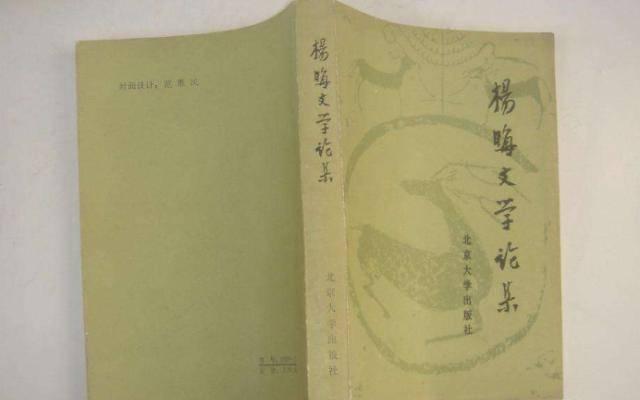 封面设计：范惠民
楊晦文学论集
北京大学出版社
楊晦文学论集
北京大学出版社